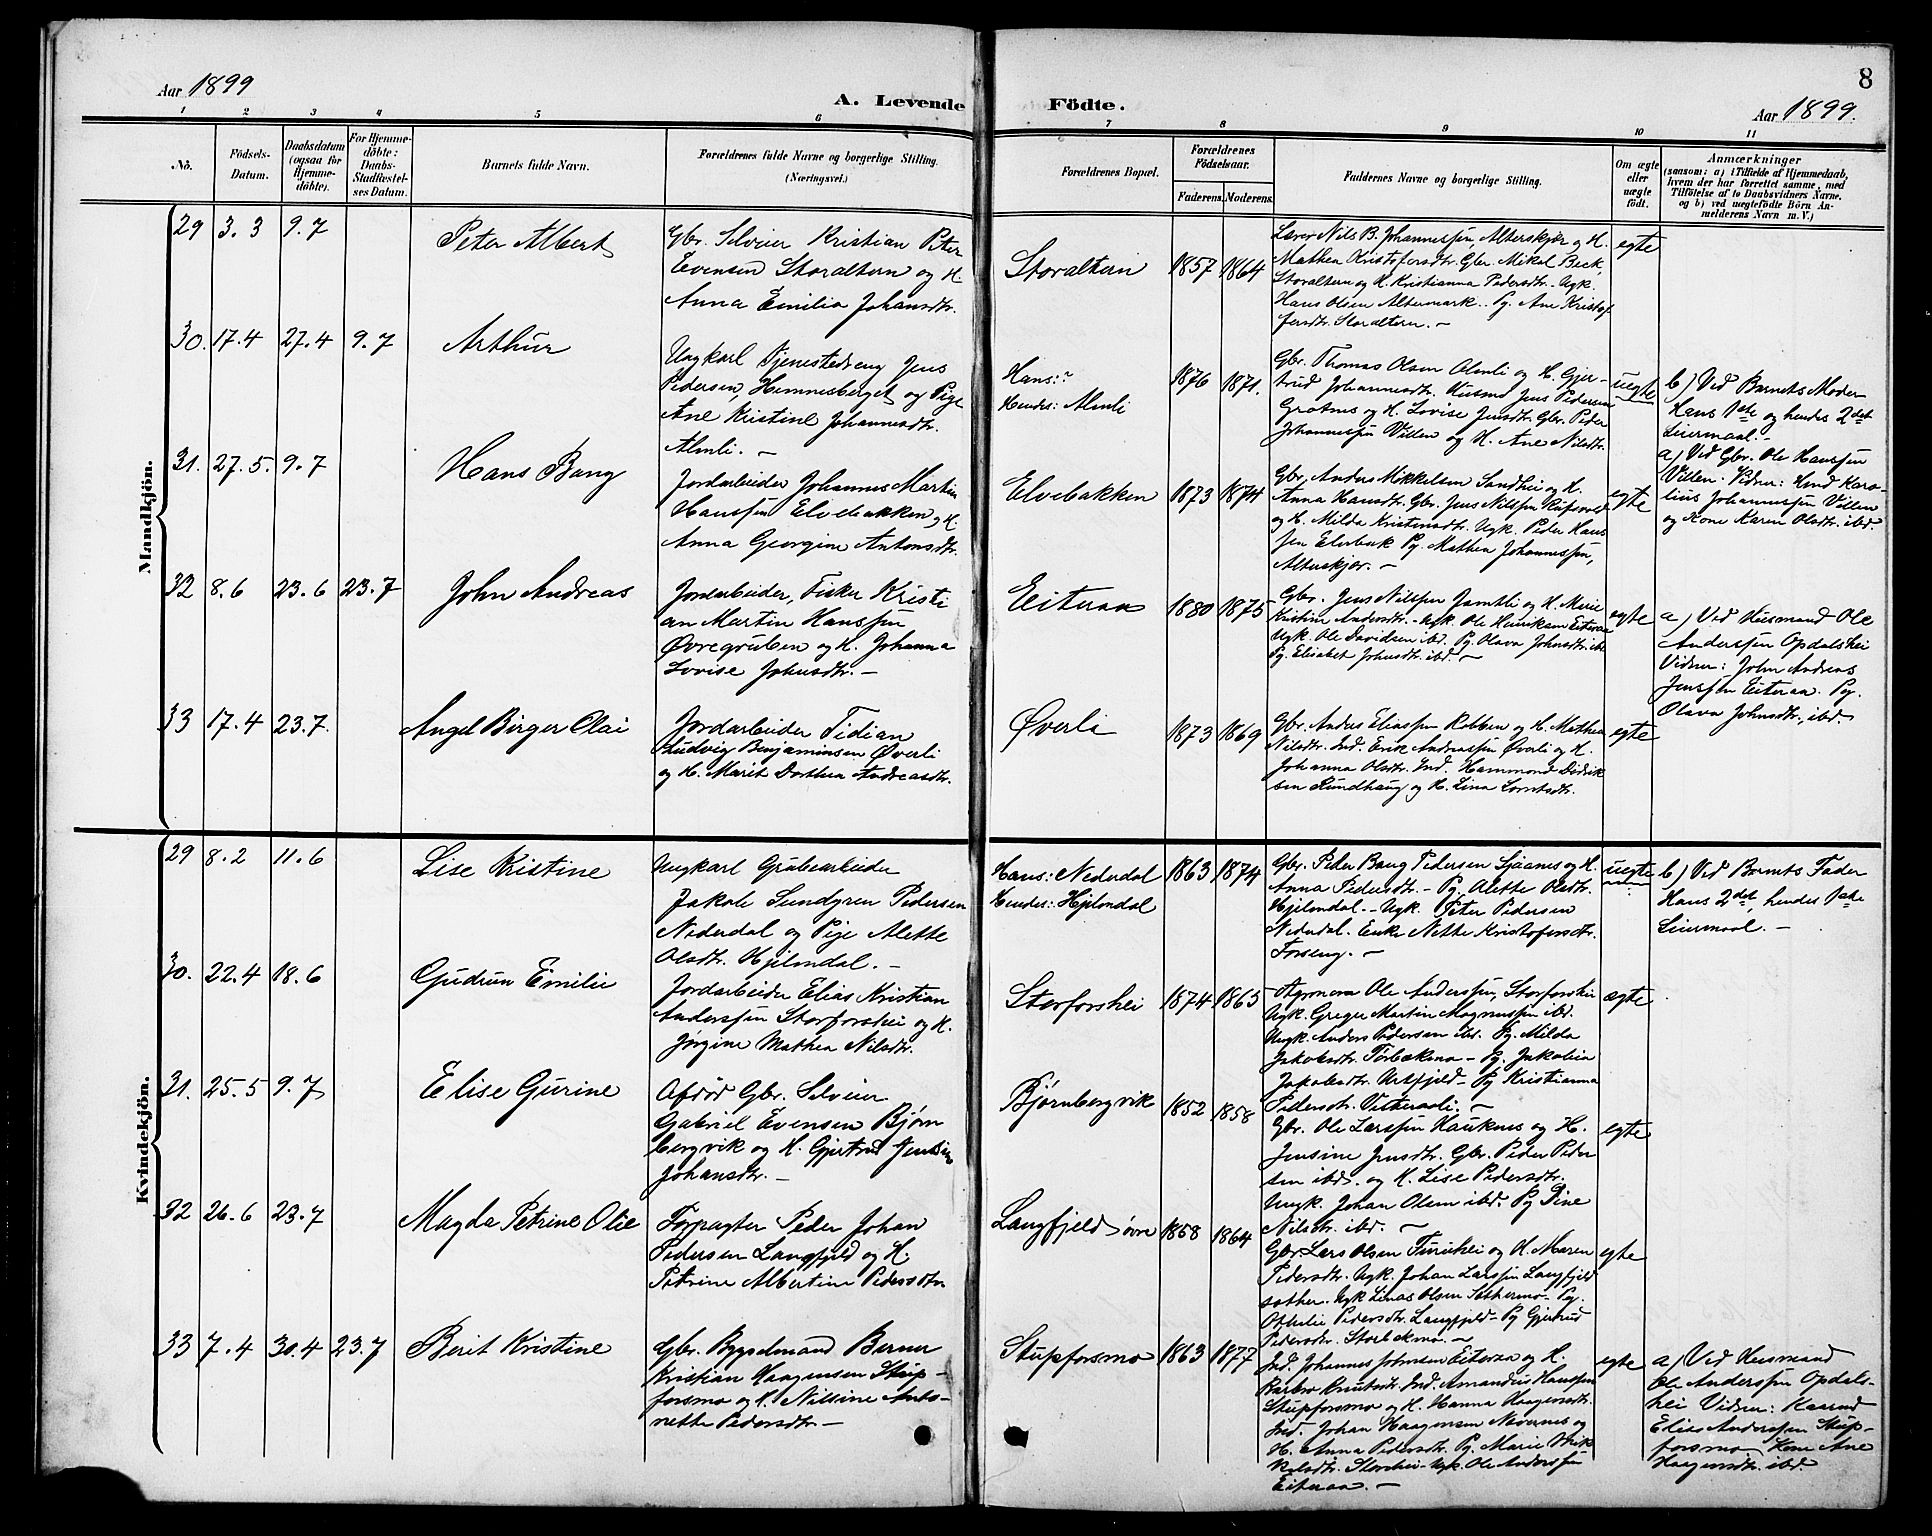 Aar 1899
A. Levende Födte.
8
Aar 1899.
1 2 3 4 5 6 7 8 9 10 11
No.
Födsels-Datum.
Daabsdatum (ogsaa for Hjemmedöbte).
For Hjemmedöbte: Daabs-Stadfæstelses Datum.
Barnets fulde Navn.
Forældrenes fulde Navne og borgerlige Stilling. (Næringsvei.)
Forældrenes Bopæl.
Forældrenes Födselsaar.
Faderens. Moderens.
Faddernes Navne og borgerlige Stilling.
Om ægte eller uægte födt.
Anmærkninger
(saasom: a) i Tilfælde af Hjemmedaab, hvem der har forrettet samme, med Tilföielse af to Daabsvidners Navne, og b) ved uægtefödte Börn Anmelderens Navn m. V.)
Mandkjön.
29 3.3 9.7
Peter Albert
Gbr. Selveier Kristian Peter
Evensen Storaltern og H.
Anna Emilia Johansdtr.
Storaltern
1857 1864
Lærer Nils B. Johannessen, Alterskjær og H.
Mathea Kristofersdtr. Gbr. Mikal Beck,
Storaltern og H. Kristianna Pedersdtr. Ugk.
Hans Olsen Altermark. Pg. Ane Kristof
fersdtr. Storaltern. –
egte
30. 17.4 27.4 9.7
Arthur
Ungkarl Tjenestedreng Jens
Pedersen, Hemnesberget og Pige
Ane Kristine Johannesdtr.
Almli. –
Hans: ?
Hendes: Almli
1876 1871.
Gbr. Thomas Olsen Almli og H. Gjer-
trud Johannesdtr. Husmd Jens Pedersen
Grotnes og H. Lovise Jensdtr. Gbr. Peder
Johannessen Villen og H. Ane Nilsdtr.
uegte
b) Ved Barnets Moder
Hans 1ste og hendes 2det
Leiermaal. –
31. 27.5. 9.7
Hans Bang
Jordarbeider Johannes Martin
Hanssen Elvebakken og H.
Anna Georgine Antonsdtr.
Elvebakken
1873 1874
Gbr. Anders Mikkelsen Sandhei og H.
Anna Hansdtr. Gbr. Jens Nilssen
og H. Milda Kristensdtr. Ugk. Peder Hans
sen Elvebak Pg. Mathea Johannessen,
Alterskjær. –
egte
a) Ved Gbr. Ole Hanssen
Villen: Vidner: Hmd Karo-
lius Johannessen Villen
og Kone Karen Olsdtr. ibd.
32 8.6 23.6 23.7
John Andreas
Jordarbeider, Fisker Kristi
an Martin Hanssen
Øvregruben og H. Johanna
Lovise Johnsdtr. –
Eiteraa
1880 1875
Gbr. Jens Nilssen Jamtli og H. Marie
Kristine Andersdtr. – Ugk. Ole Henriksen Eiteraa
Ugk. Ole Davidsen ibd. Pg. Olava Johnsdtr. ibd
Pg. Elisabet Johnsdtr. ibd. –
egte
a) Ved Husmand Ole
Anderssen Opdalshei
Vidner: John Andreas
Jenssen Eiteraa. Pg.
Olava Johnsdtr., ibd.
33 17.4 23.7.
Angel Birger Olai
Jordarbeider Tidian
Ludvig Benjaminsen Øverli
og H. Marit Dorthea Andreasdtr.
Øverli
1873 1869
Gbr. Anders Eliassen Kobben og H. Mathea
Nilsdtr. Ind. Erik Andreassen Øverli og H.
Johanna Olsdtr. Ind. Hammond Didrik
sen Rundhaug og H. Lina Lorntsdtr.
egte
Kvindekjön.
29 8.2 11.6
Lise Kristine
Ungkarl Grubearbeider
Jakob Sundgren Pedersen
Nederdal og Pige Alette
Olsdtr. Hjelondal. –
Hans: Nederdal
Hendes: Hjelondal
1863 1874
Gbr. Peder Bang Pedersen Sjaanes og H.
Anna Pedersdtr. – Pg. Alette Olsdtr.
Hjelondal. – Ugk. Peter Pedersen
Nederdal. Enke Nette Kristofersdtr.
Forseng. –
uegte
b) Ved Barnets Fader
Hans 2det, hendes 1ste
Leiermaal. –
30. 22.4 18.6
Gudrun Emilie
Jordarbeider Elias Kristian
Anderssen Storforshei og H.
Jørgine Mathea Nilsdtr.
Storforshei
1874 1865
Agronom Ole Anderssen, Storforshei
Ugk. Greger Martin Magnussen ibd.
Ungk. Anders Pedersen ibd. Pg. Milda
Jakobsdtr. Tørbekmo – Pg. Jakobia
Jakobsdtr. Urtfjeld – Pg Kristianna
Pedersdtr. –
ægte
31. 25.5 9.7
Elise Gurine
Afdød Gbr. Selveier
Gabriel Evensen Bjørn
bergvik og H. Gjertrud Jensine
Johansdtr. –
Bjørnbergvik
1852 1858
Gbr. Ole Larssen Hauknes og H.
Jensine Jensdtr. Gbr. Peder Peder
sen ibd. og H. Lise Pedersdtr.
Ungk. Johan Olsen ibd. Pg Dine
Nilsdtr. ibd. –
egte
32 26.6 23.7
Magda Petrine Olie
Forpagter Peder Johan
Pedersen Langfjeld og H.
Petrine Albertine Pedersdtr
Langfjeld øvre
1858 1864
Gbr. Lars Olsen Furuhei og H. Maren
Pedersdtr. Ugk. Johan Larssen Langfjeld
sæther. Ugk Linas Olsen Sethermo – Pg.
Othelie Pedersdtr. Langfjeld – Pg Gjertrud
Pedersdtr. Storbekmo. –
egte
33 7.4 30.4 23.7
Berit Kristine
Gbr. Bygselmand Berner
Kristian Haagensen Stup-
forsmo og H. Nilsine Anto-
nette Pedersdtr. –
Stupforsmo
1863 1877
Ind. Johannes Johnsen Eiteraa og H.
Barbro Knutsdtr. Ind. Amandus Hanssen
Stupforsmo og H. Hanna Haagensdtr.
Ind. Johan Haagensen Nævernes og
H. Anna Pedersdtr. Pg. Marie
Nilsdtr. Storshei – Ugk. Ole Anderssen
Eiteraa. –
egte
a) Ved Husmand
Ole Anderssen Opdals-
hei Vidner: Kaarmd
Elias Anderssen Stup-
forsmo, Kone Ane
Haagensdtr. ibd.